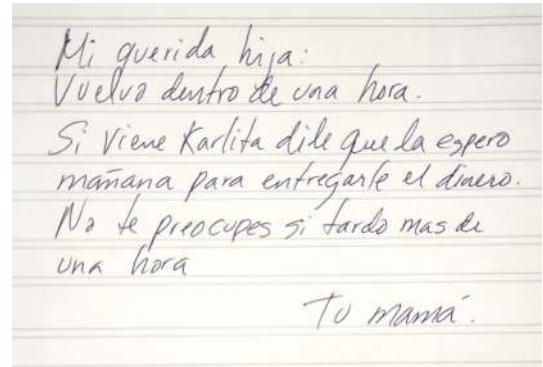 Mi querida hija:
Vuelvo dentro de una hora.
Si viene Karlita dile que la espero
mañana para entregarle el dinero.
No te preocupes si tardo mas de
una hora
Tu mamá.